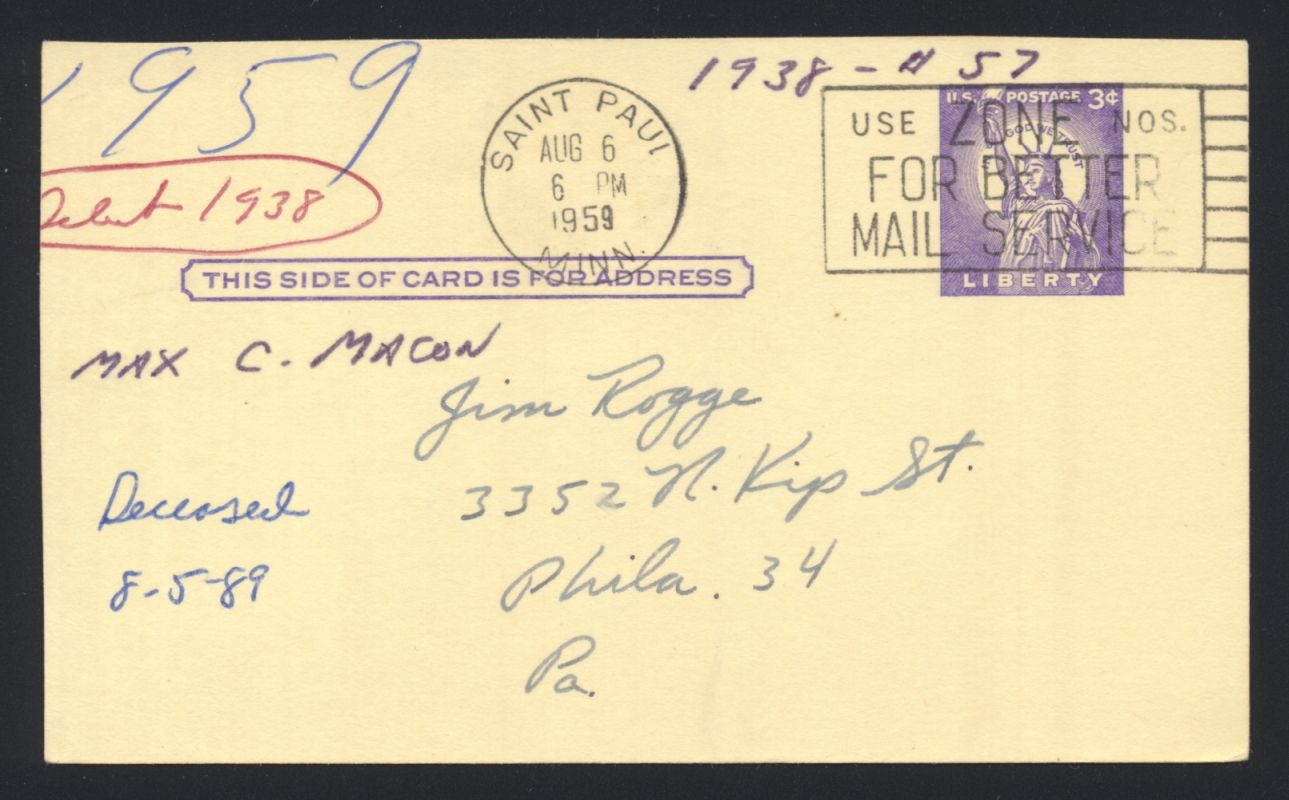 1959
1938 - # 57
Debut 1938
SAINT PAUL
AUG 6
6 PM
1959
MINN.
U.S. POSTAGE 3¢
IN GOD WE TRUST
LIBERTY
USE ZONE NOS.
FOR BETTER
MAIL SERVICE
THIS SIDE OF CARD IS FOR ADDRESS
MAX C. MACON
Jim Rogge
3352 N. Kip St.
Phila. 34
Pa.
Deceased
8-5-89